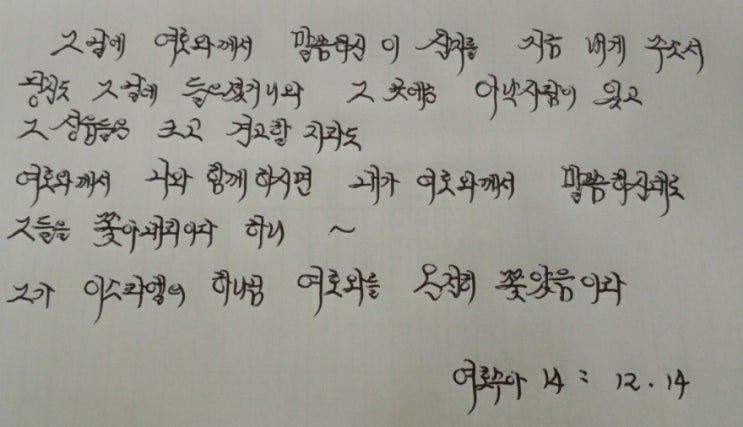 그 날에 여호와께서 말씀하신 이 산지를 지금 내게 주소서
당신도 그 날에 들으셨거니와 그 곳에는 아낙사람이 있고
그 성읍들은 크고 견고할 지라도
여호와께서 나와 함께 하시면 내가 여호와께서 말씀하신대로
그들을 쫓아내리이다 하니 ~
그가 이스라엘의 하나님 여호와를 온전히 쫓았음이라
여호수아 14 : 12. 14